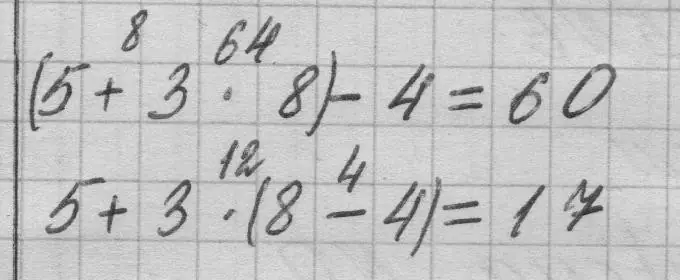 8 64
(5 + 3 · 8) - 4 = 60
12 4
5 + 3 · (8 - 4) = 17